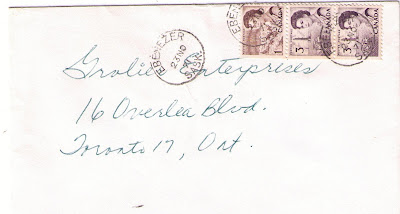 EBENEZER
23 NO
SASK.
EBENEZER
SASK.
3 CANADA
3 CANADA
Grolier Enterprises
16 Overlea Blvd.
Toronto 17, Ont.